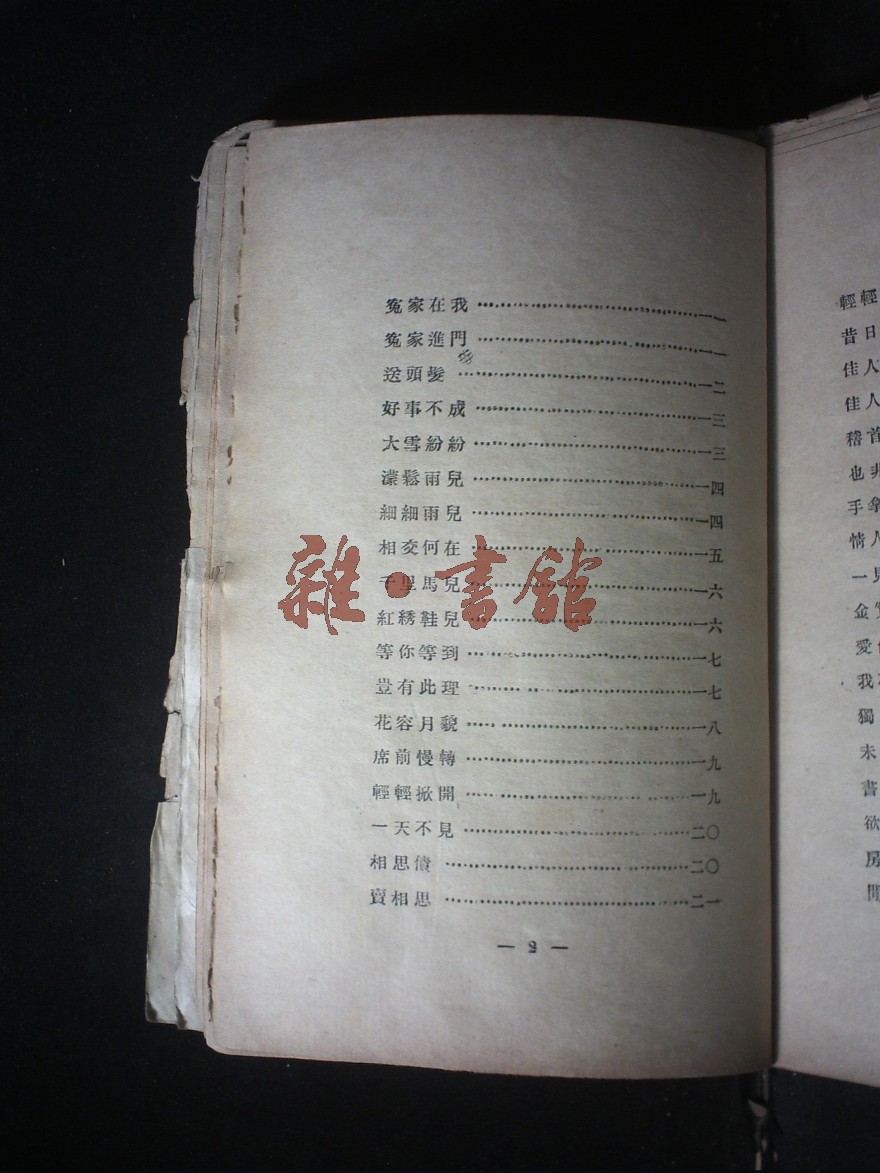 冤家在我……一一
冤家進門……一一
送頭髮……一二
好事不成……一三
大雪紛紛……一三
濛鬆雨兒……一四
細細雨兒……一四
相交何在……一五
千里馬兒……一六
紅綉鞋兒……一六
等你等到……一七
豈有此理……一七
花容月貌……一八
席前慢轉……一九
輕輕掀開……一九
一天不見……二〇
相思債……二〇
賣相思……二一
— 2 —
雜·書館
輕輕
昔日
佳人
佳人
稽首
也非
手拿
情人
一見
金
愛
我
獨
未
書
欲
房